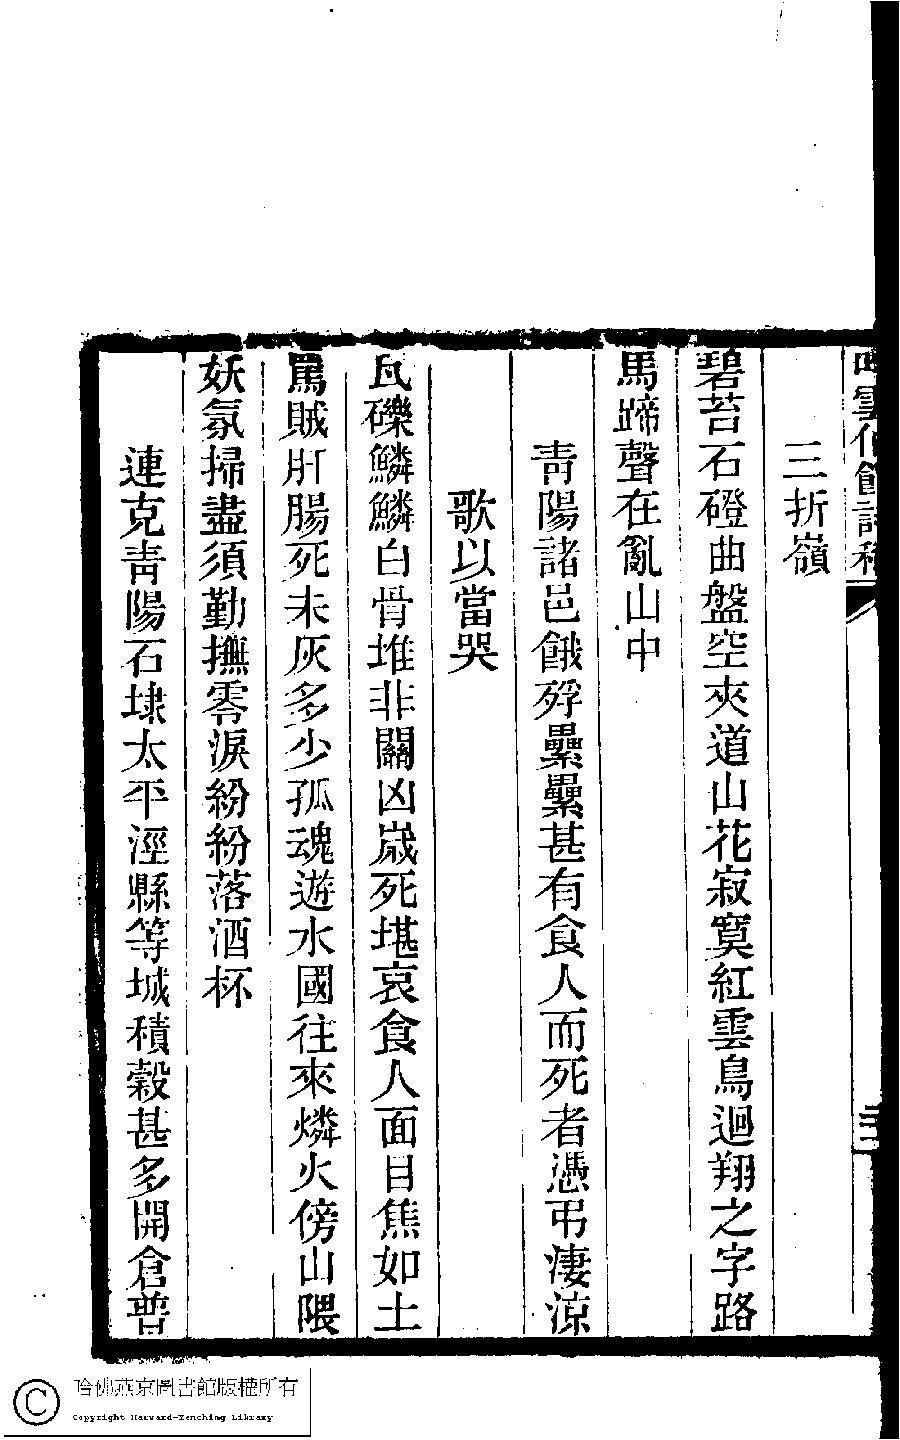 三折嶺
碧苔石磴曲盤空夾道山花寂寞紅雲鳥迴翔之字路
馬蹄聲在亂山中
青陽諸邑餓殍纍纍甚有食人而死者憑弔淒涼
歌以當哭
瓦礫鱗鱗白骨堆非關凶歲死堪哀食人面目焦如土
罵賊肝腸死未灰多少孤魂遊水國往來燐火傍山隈
妖氛掃盡須勤撫零淚紛紛落酒杯
連克青陽石埭太平涇縣等城積穀甚多開倉普
哈佛燕京圖書館版權所有
Copyright Harvard-Yenching Library